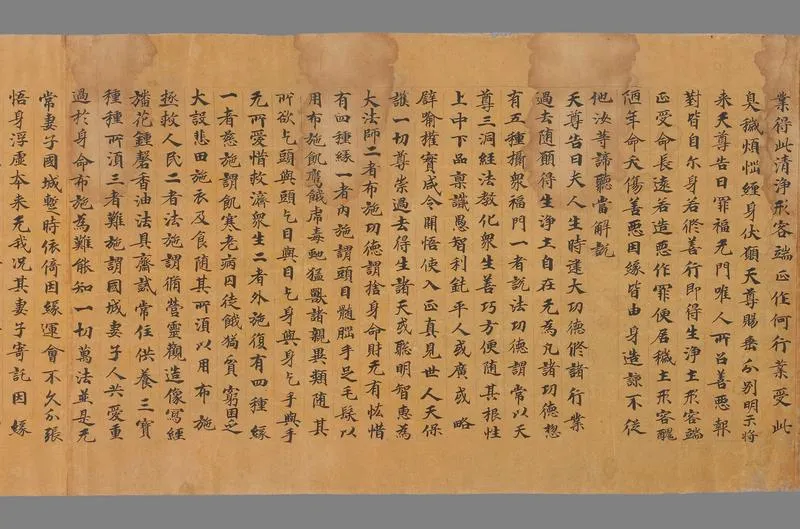 業得此清淨形容端正作何行業受此
臭穢煩惱纏身伏願天尊賜垂分別明示將
來天尊告曰罪福无門唯人所召善惡報
對皆自尒身若修善行即得生淨土形容端
正受命長遠若造惡作罪便居穢土形容醜
陋年命夭傷善惡因緣皆由身造諒不從
他汝等諦聽當解說
天尊告曰夫人生時建大功德修諸行業
過去随願得生淨土自在无為凡諸功德惣
有五種攝衆福門一者說法功德謂常以天
尊三洞經法教化衆生善巧方便随其根性
上中下品稟識愚智利鈍平人或廣或略
辟喻摧實咸令開悟使入正真見世人天保
護一切尊崇過去得生諸天或聰明智惠為
大法師二者布施功德謂捨身命財无有悋惜
有四種緣一者內施謂頭目髓腦手足毛髮以
用布施飢鷹餓虎毒虵猛獸諸親異類随其
所欲乞頭與頭乞目與目乞身與身乞手與手
无所愛惜救濟衆生二者外施復有四種緣
一者慈施謂飢寒老病囚徒餓狗貧窮困乏
大設悲田施衣及食随其所湏以用布施
拯救人民二者法施謂循營靈觀造像寫經
旛花鍾磬香油法具齋試常住供養三寶
種種所湏三者難施謂國城妻子人共愛重
過於身命布施為難能知一切萬法並是无
常妻子國城蹔時依倚因緣運會不久分張
悟身浮虛夲來无我况其妻子寄託因緣